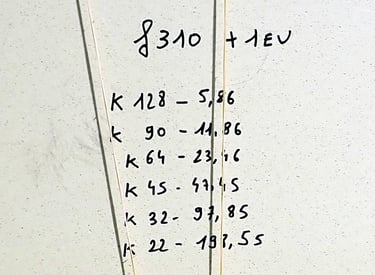 f 310 + 1EV
K 128 - 5,86
K 90 - 11,86
K 64 - 23,46
K 45 - 47,45
K 32 - 97,85
K 22 - 193,55